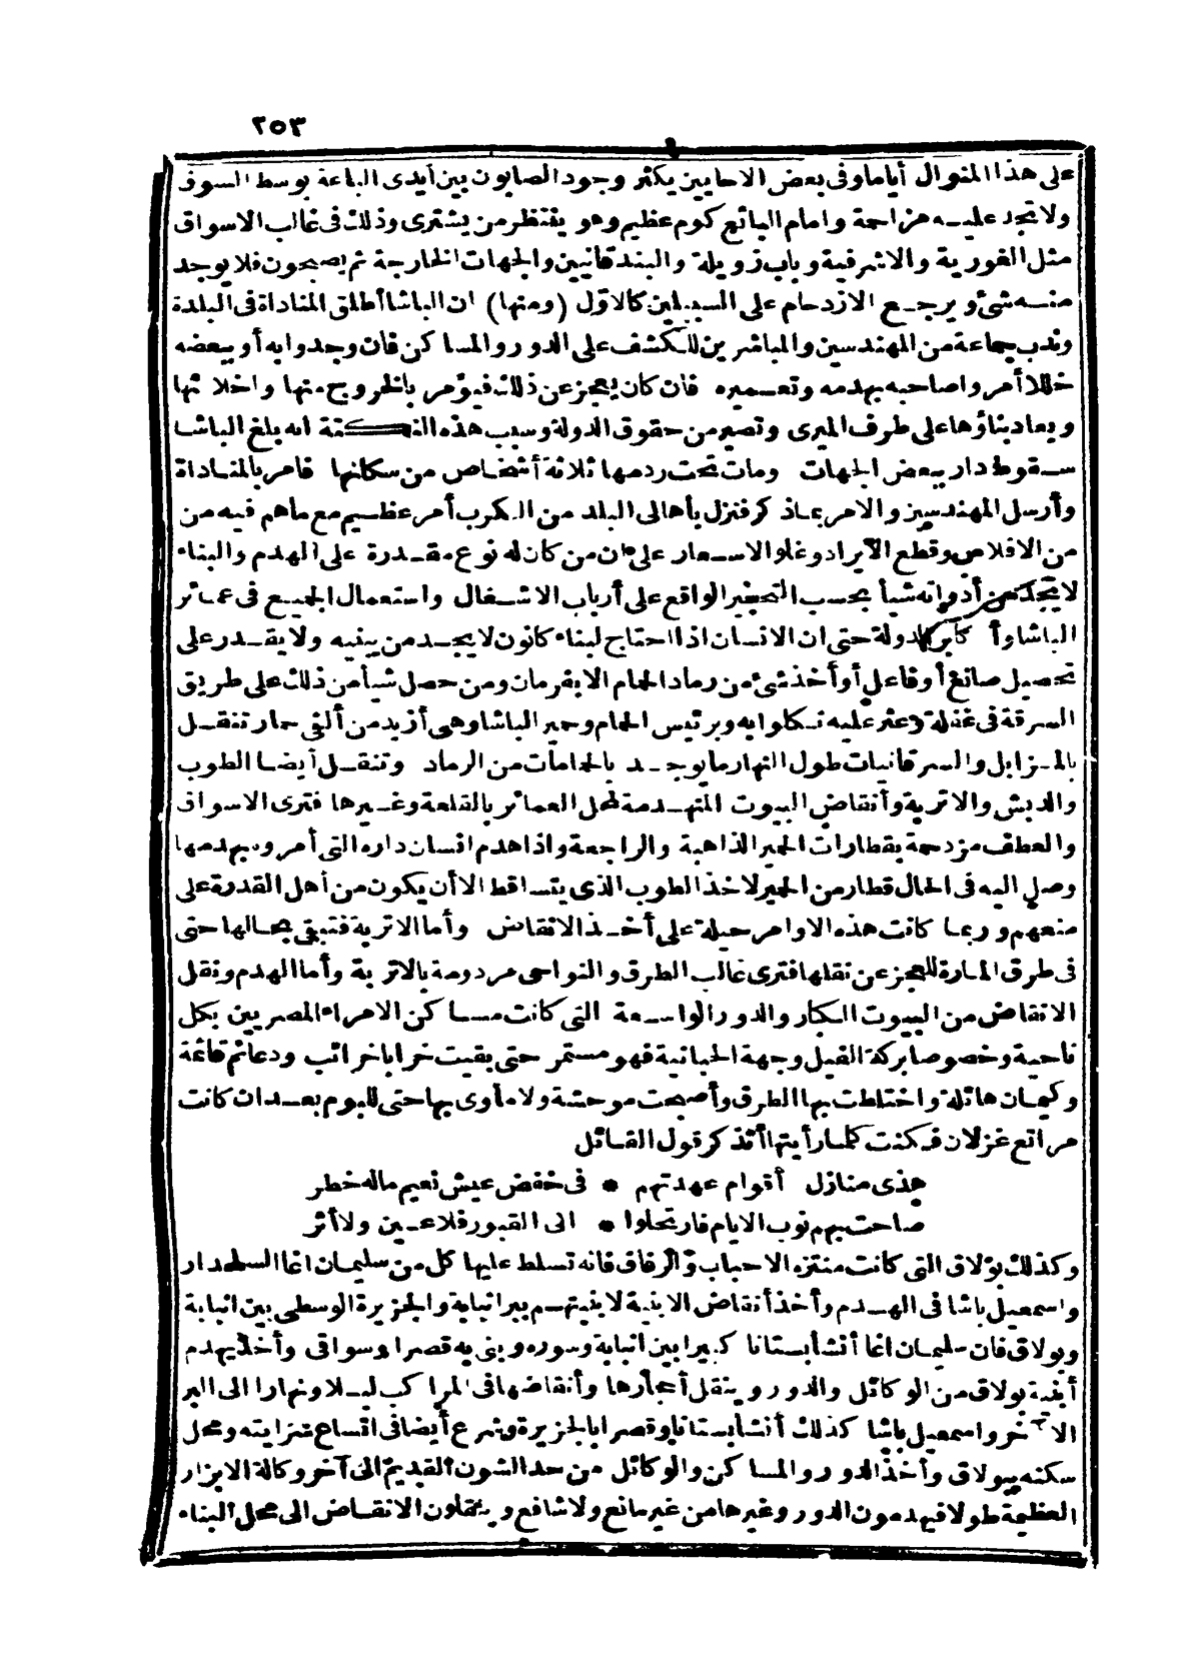 ٢٥٣
على هذا المنوال أياما وفى بعض الاحايين يكثر وجود الصابون بين أيدى الباعة بوسط السوق
ولا تجد عليه مزاحمة وامام البائع كوم عظيم وهو ينتظر من يشترى وذلك فى غالب الاسواق
مثل الغورية والاشرفية وباب زويلة والبندقانيين والجهات الخارجة ثم يصبحون فلا يوجد
منه شئ ويرجع الازدحام على السبيلين كالاول (ومنها) ان الباشا أطلق المناداة فى البلدة
وندب جماعة من المهندسين والمباشرين للكشف على الدور والمساكن فان وجدوا به أو ببعضه
خللا أمروا صاحبه بهدمه وتعميره فان كان يعجز عن ذلك فيؤمر بالخروج منها واخلائها
ويعاد بناؤها على طرف الميرى وتصير من حقوق الدولة وسبب هذه النكتة انه بلغ الباشا
سقوط دار ببعض الجهات ومات تحت ردمها ثلاثة أشخاص من سكانها فامر بالمناداة
وأرسل المهندسين والامر بماذكر فنزل بأهالى البلد من الكرب أمر عظيم مع ماهم فيه من
من الافلاس وقطع الايراد وغلو الاسعار على ان من كان له نوع مقدرة على الهدم والبناء
لا يجد من أدواته شيأ بحسب التحجير الواقع على أرباب الاشغال واستعمال الجميع فى عمائر
الباشا وأكابر الدولة حتى ان الانسان اذا احتاج لبناء كانون لا يجد من يبنيه ولا يقدر على
تحصيل صانع أو فاعل أو أخذ شئ من رماد الحمام الا بفرمان ومن حصل شيأ من ذلك على طريق
السرقة فى غفلة وعثر عليه نكلوا به وبرئيس الحمام وحمير الباشا وهى أزيد من ألفى حمار تنقل
بالمزابل والسرقانيات طول النهار ما يوجد بالحمامات من الرماد وتنقل أيضا الطوب
والدبش والاتربة وأنقاض البيوت المنهدمة لمحل العمائر بالقلعة وغيرها فترى الاسواق
والعطف مزدحمة بقطارات الحمير الذاهبة والراجعة واذا هدم انسان داره التى أمروه بهدمها
وصل اليه فى الحال قطار من الحمير لاخذ الطوب الذى يتساقط الا أن يكون من أهل القدرة على
منعهم وربما كانت هذه الاوامر حيلة على أخذ الانقاض وأما الاتربة فتبقى بحالها حتى
فى طرق المارة للعجز عن نقلها فترى غالب الطرق والنواحى مردومة بالاتربة وأما الهدم ونقل
الانقاض من البيوت الكبار والدور الواسعة التى كانت مساكن الامراء المصريين بكل
ناحية وخصوصا بركة الفيل وجهة الحبانية فهو مستمر حتى بقيت خرابا خرائب ودعائم قائمة
وكيمان هائلة واختلطت بها الطرق وأصبحت موحشة ولا مأوى بها حتى للبوم بعد ان كانت
مراتع غزلان فكنت كلما رأيتها أتذكر قول القائل
هذى منازل أقوام عهدتهم • فى خفض عيش نعيم ماله خطر
صاحت بهم نوب الايام فارتحلوا • الى القبور فلا عين ولا أثر
وكذلك بولاق التى كانت منتزه الاحباب والرفاق فانه تسلط عليها كل من سليمان اغا السلحدار
واسمعيل باشا فى الهدم وأخذ أنقاض الابنية لابنيتهم ببر انبابة والجزيرة الوسطى بين انبابة
وبولاق فان سليمان اغا أنشأ بستانا كبيرا بين انبابة وسوره وبنى به قصرا وسواقى وأخذ يهدم
أبنية بولاق من الوكائل والدور وينقل أحجارها وأنقاضها فى المراكب ليلا ونهارا الى البر
الآخر واسمعيل باشا كذلك أنشأ بستانا وقصرا بالجزيرة وشرع أيضا فى اتساع سرايته ومحل
سكنه ببولاق وأخذ الدور والمساكن والوكائل من حد الشون القديم الى آخر وكالة الابزار
العظيمة طولا فيهدمون الدور وغيرها من غير مانع ولا شافع وينقلون الانقاض الى محل البناء